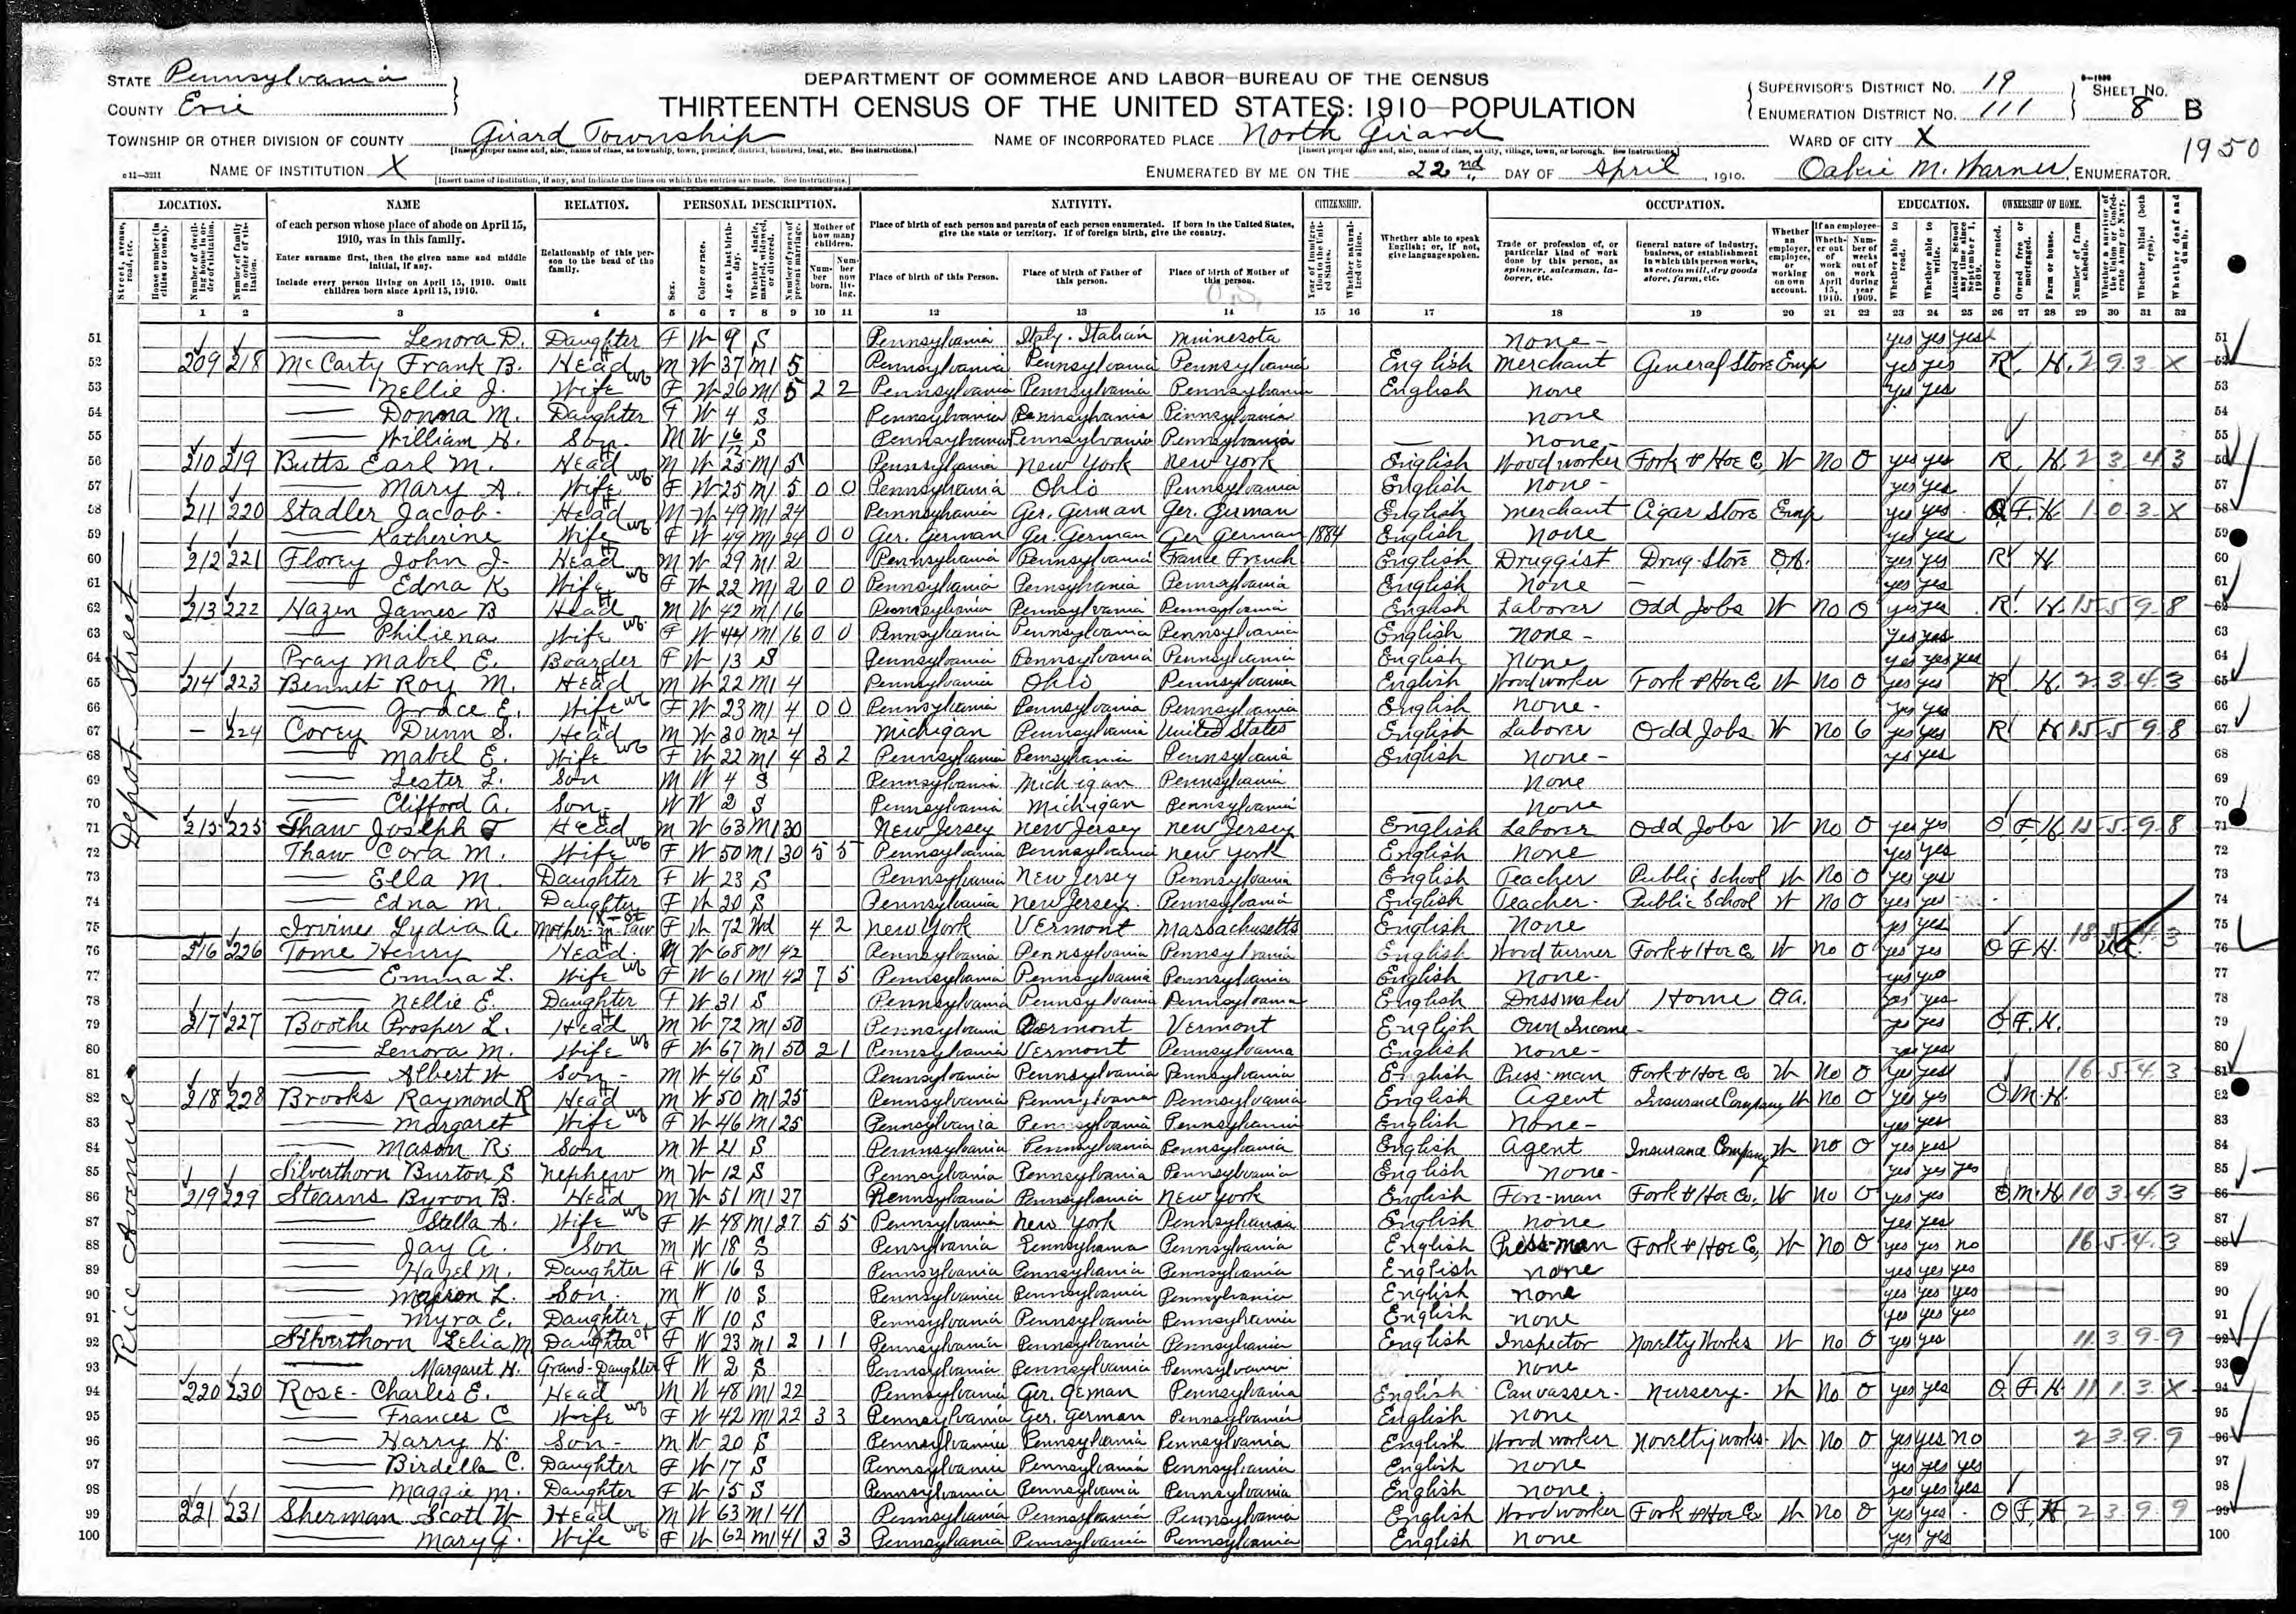 STATE Pennsylvania
COUNTY Erie
DEPARTMENT OF COMMERCE AND LABOR—BUREAU OF THE CENSUS
THIRTEENTH CENSUS OF THE UNITED STATES: 1910—POPULATION
SUPERVISOR'S DISTRICT No. 19
ENUMERATION DISTRICT No. 111
SHEET No. 8 B
TOWNSHIP OR OTHER DIVISION OF COUNTY Girard Township
NAME OF INCORPORATED PLACE North Girard
WARD OF CITY X
1950
NAME OF INSTITUTION X
ENUMERATED BY ME ON THE 22nd DAY OF April, 1910.
Oakie M. Warner, ENUMERATOR.
LOCATION. NAME RELATION. PERSONAL DESCRIPTION. NATIVITY. CITIZENSHIP. OCCUPATION. EDUCATION. OWNERSHIP OF HOME.
of each person whose place of abode on April 15, 1910, was in this family.
Enter surname first, then the given name and middle initial, if any.
Include every person living on April 15, 1910. Omit children born since April 15, 1910.
Relationship of this person to the head of the family.
Place of birth of each person and parents of each person enumerated. If born in the United States, give the state or territory. If of foreign birth, give the country.
Place of birth of this Person. Place of birth of Father of this person. Place of birth of Mother of this person.
Whether able to speak English; or, if not, give language spoken.
Trade or profession of, or particular kind of work done by this person, as spinner, salesman, laborer, etc.
General nature of industry, business, or establishment in which this person works, as cotton mill, dry goods store, farm, etc.
1 2 3 4 5 6 7 8 9 10 11 12 13 14 15 16 17 18 19 20 21 22 23 24 25 26 27 28 29 30 31 32
Depot Street
51 Lenora D. Daughter F W 9 S Pennsylvania Italy. Italian Minnesota None yes yes yes 51
52 209 218 McCarty Frank B. Head M W 37 M1 5 Pennsylvania Pennsylvania Pennsylvania English Merchant General Store Emp yes yes R H 2 9 3 X 52
53 Nellie J. Wife F W 26 M1 5 2 2 Pennsylvania Pennsylvania Pennsylvania English None yes yes 53
54 Donna M. Daughter F W 4 S Pennsylvania Pennsylvania Pennsylvania None 54
55 William H. Son M W 1 6/12 S Pennsylvania Pennsylvania Pennsylvania None 55
56 210 219 Butts Earl M. Head M W 25 M1 5 Pennsylvania New York New York English Woodworker Fork & Hoe C. W No 0 yes yes R H 2 3 4 3 56
57 Mary A. Wife F W 25 M1 5 0 0 Pennsylvania Ohio Pennsylvania English None yes yes 57
58 211 220 Stadler Jacob Head M W 49 M1 24 Pennsylvania Ger. German Ger. German English Merchant Cigar Store Emp yes yes O F H 1 0 3 X 58
59 Katherine Wife F W 49 M1 24 0 0 Ger. German Ger. German Ger German 1884 English None yes yes 59
60 212 221 Florey John J. Head M W 29 M1 2 Pennsylvania Pennsylvania France French English Druggist Drug Store O.A. yes yes R H 60
61 Edna K Wife F W 22 M1 2 0 0 Pennsylvania Pennsylvania Pennsylvania English None yes yes 61
62 213 222 Hazen James B Head M W 42 M1 16 Pennsylvania Pennsylvania Pennsylvania English Laborer Odd Jobs W No 0 yes yes R H 15 5 9 8 62
63 Philiena Wife F W 44 M1 16 0 0 Pennsylvania Pennsylvania Pennsylvania English None yes yes 63
64 Pray Mabel E. Boarder F W 13 S Pennsylvania Pennsylvania Pennsylvania English None yes yes yes 64
65 214 223 Bennet Roy M. Head M W 22 M1 4 Pennsylvania Ohio Pennsylvania English Woodworker Fork & Hoe C. W No 0 yes yes R H 2 3 4 3 65
66 Grace E. Wife F W 23 M1 4 0 0 Pennsylvania Pennsylvania Pennsylvania English None yes yes 66
67 – 224 Corey Dunn S. Head M W 30 M2 4 Michigan Pennsylvania United States English Laborer Odd Jobs W No 6 yes yes R H 15 5 9 8 67
68 Mabel E. Wife F W 22 M1 4 3 2 Pennsylvania Pennsylvania Pennsylvania English None yes yes 68
69 Lester L. Son M W 4 S Pennsylvania Michigan Pennsylvania None 69
70 Clifford A. Son W W 2 S Pennsylvania Michigan Pennsylvania None 70
71 215 225 Thaw Joseph T Head M W 63 M1 30 New Jersey New Jersey New Jersey English Laborer Odd Jobs W No 0 yes yes O F H 15 5 9 8 71
72 Thaw Cora M. Wife F W 50 M1 30 5 5 Pennsylvania Pennsylvania New York English None yes yes 72
73 Ella M. Daughter F W 23 S Pennsylvania New Jersey Pennsylvania English Teacher Public School W No 0 yes yes 73
74 Edna M. Daughter F W 20 S Pennsylvania New Jersey Pennsylvania English Teacher Public School W No 0 yes yes 74
75 Irvine Lydia A. Mother-in-law F W 72 Wd 4 2 New York Vermont Massachusetts English None yes yes 75
Rice Avenue
76 216 226 Tome Henry Head M W 68 M1 42 Pennsylvania Pennsylvania Pennsylvania English Wood turner Fork & Hoe C. W No 0 yes yes O F H 76
77 Emma L. Wife F W 61 M1 42 7 5 Pennsylvania Pennsylvania Pennsylvania English None yes yes 77
78 Nellie E. Daughter F W 31 S Pennsylvania Pennsylvania Pennsylvania English Dressmaker Home O A. yes yes 78
79 217 227 Boothe Prosper L. Head M W 72 M1 50 Pennsylvania Vermont Vermont English Own Income yes yes O F H. 79
80 Lenora M. Wife F W 67 M1 50 2 1 Pennsylvania Vermont Pennsylvania English None yes yes 80
81 Albert W Son M W 46 S Pennsylvania Pennsylvania Pennsylvania English Press-man Fork & Hoe Co W No 0 yes yes 16 5 4 3 81
82 218 228 Brooks Raymond R Head M W 50 M1 25 Pennsylvania Pennsylvania Pennsylvania English Agent Insurance Company W No 0 yes yes O M H. 82
83 Margaret Wife F W 46 M1 25 Pennsylvania Pennsylvania Pennsylvania English None yes yes 83
84 Mason R. Son M W 21 S Pennsylvania Pennsylvania Pennsylvania English Agent Insurance Company W No 0 yes yes 84
85 Silverthorn Burton S Nephew M W 12 S Pennsylvania Pennsylvania Pennsylvania English None yes yes yes 85
86 219 229 Stearns Byron B. Head M W 51 M1 27 Pennsylvania Pennsylvania New York English Fore-man Fork & Hoe Co. W No 0 yes yes O M H 10 3 4 3 86
87 Stella A. Wife F W 48 M1 27 5 5 Pennsylvania New York Pennsylvania English None yes yes 87
88 Jay A. Son M W 18 S Pennsylvania Pennsylvania Pennsylvania English Press-man Fork & Hoe Co, W No 0 yes yes no 16 5 4 3 88
89 Hazel M. Daughter F W 16 S Pennsylvania Pennsylvania Pennsylvania English None yes yes yes 89
90 L. Son M W 10 S Pennsylvania Pennsylvania Pennsylvania English None yes yes yes 90
91 Myra E. Daughter F W 10 S Pennsylvania Pennsylvania Pennsylvania English None yes yes yes 91
92 Silverthorn Lelia M Daughter F W 23 M1 2 1 1 Pennsylvania Pennsylvania Pennsylvania English Inspector Novelty Works W No 0 yes yes 11 3 9 9 92
93 Margaret H. Grand-Daughter F W 2 S Pennsylvania Pennsylvania Pennsylvania None 93
94 220 230 Rose Charles E. Head M W 48 M1 22 Pennsylvania Ger. German Pennsylvania English Canvasser Nursery W No 0 yes yes O F H 11 1 3 X 94
95 Frances C Wife F W 42 M1 22 3 3 Pennsylvania Ger. German Pennsylvania English None 95
96 Harry H. Son M W 20 S Pennsylvania Pennsylvania Pennsylvania English Wood worker Novelty works W No 0 yes yes no 2 3 9 9 96
97 Birdella C. Daughter F W 17 S Pennsylvania Pennsylvania Pennsylvania English None yes yes yes 97
98 Maggie M. Daughter F W 15 S Pennsylvania Pennsylvania Pennsylvania English None yes yes yes 98
99 221 231 Sherman Scott W Head M W 63 M1 41 Pennsylvania Pennsylvania Pennsylvania English Woodworker Fork & Hoe Co W No 0 yes yes O F H 2 3 9 9 99
100 Mary G. Wife F W 62 M1 41 3 3 Pennsylvania Pennsylvania Pennsylvania English None yes yes 100